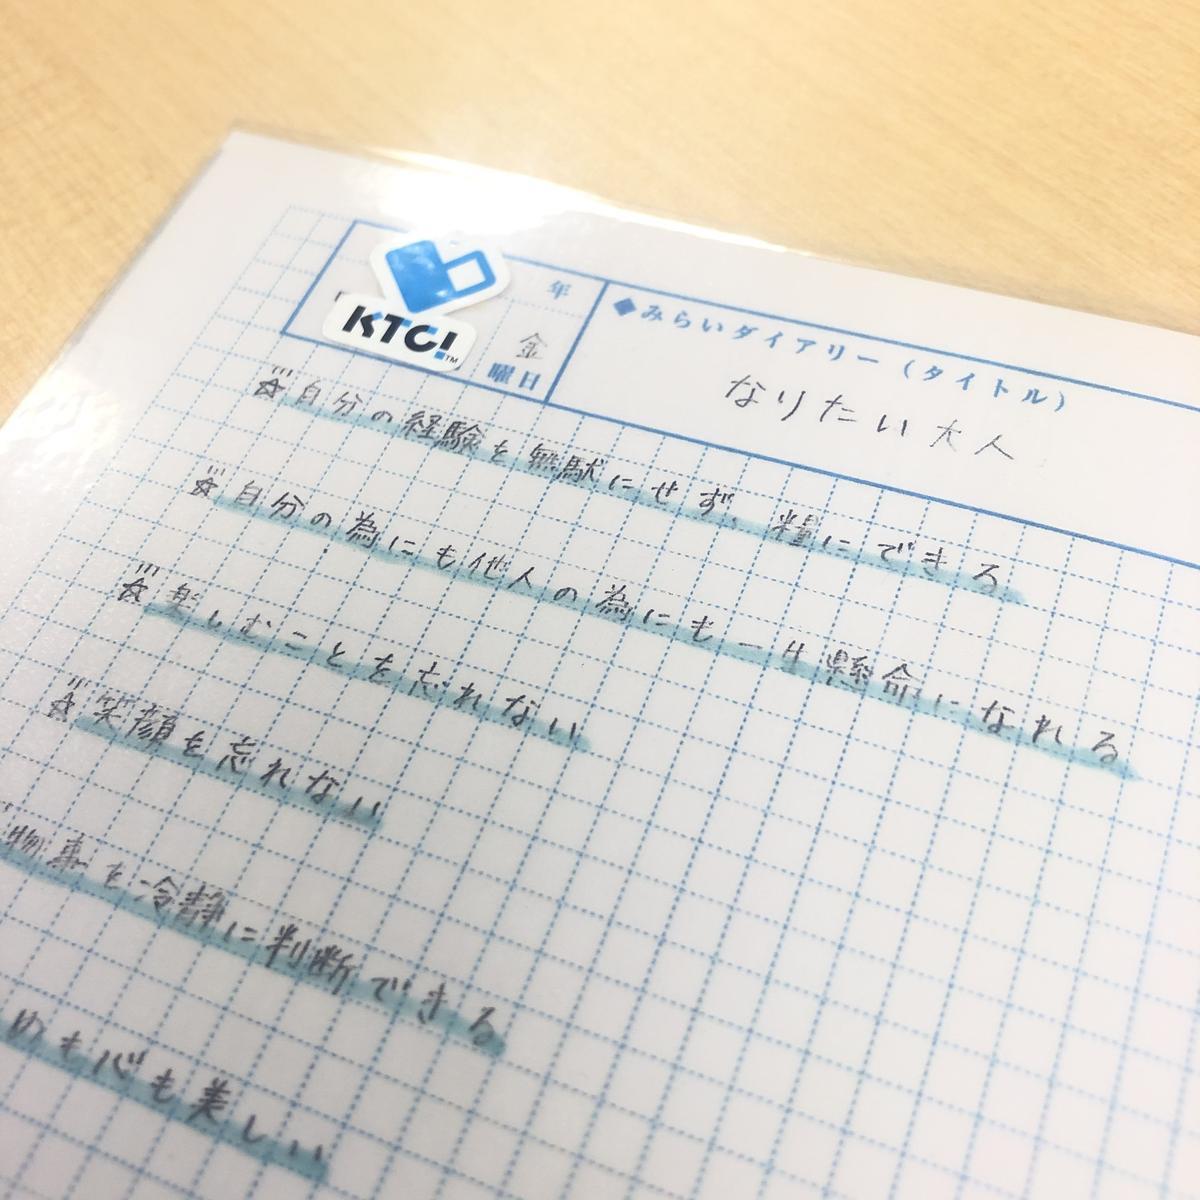 年
KTC!
TM
金
曜日
◆みらいダイアリー(タイトル)
なりたい大人
☆自分の経験を無駄にせず、糧にできる
☆自分の為にも他人の為にも一生懸命になれる
☆楽しむことを忘れない
☆笑顔を忘れない
物事を冷静に判断できる
も心も美しい